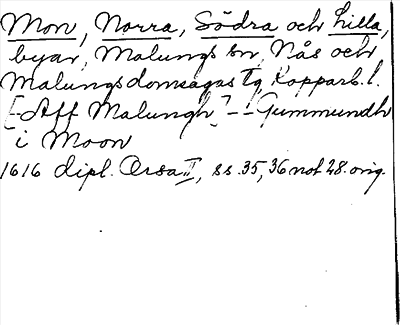 Mon, Norra, Södra och Lilla,
byar, Malungs sn, Nås och
Malungs domsagas tg, Kopparb. l.
[-Aff Malungh,] -- Gummundh
i Moon
1616 dipl. Orsa II, ss. 35, 36 not 28. orig.